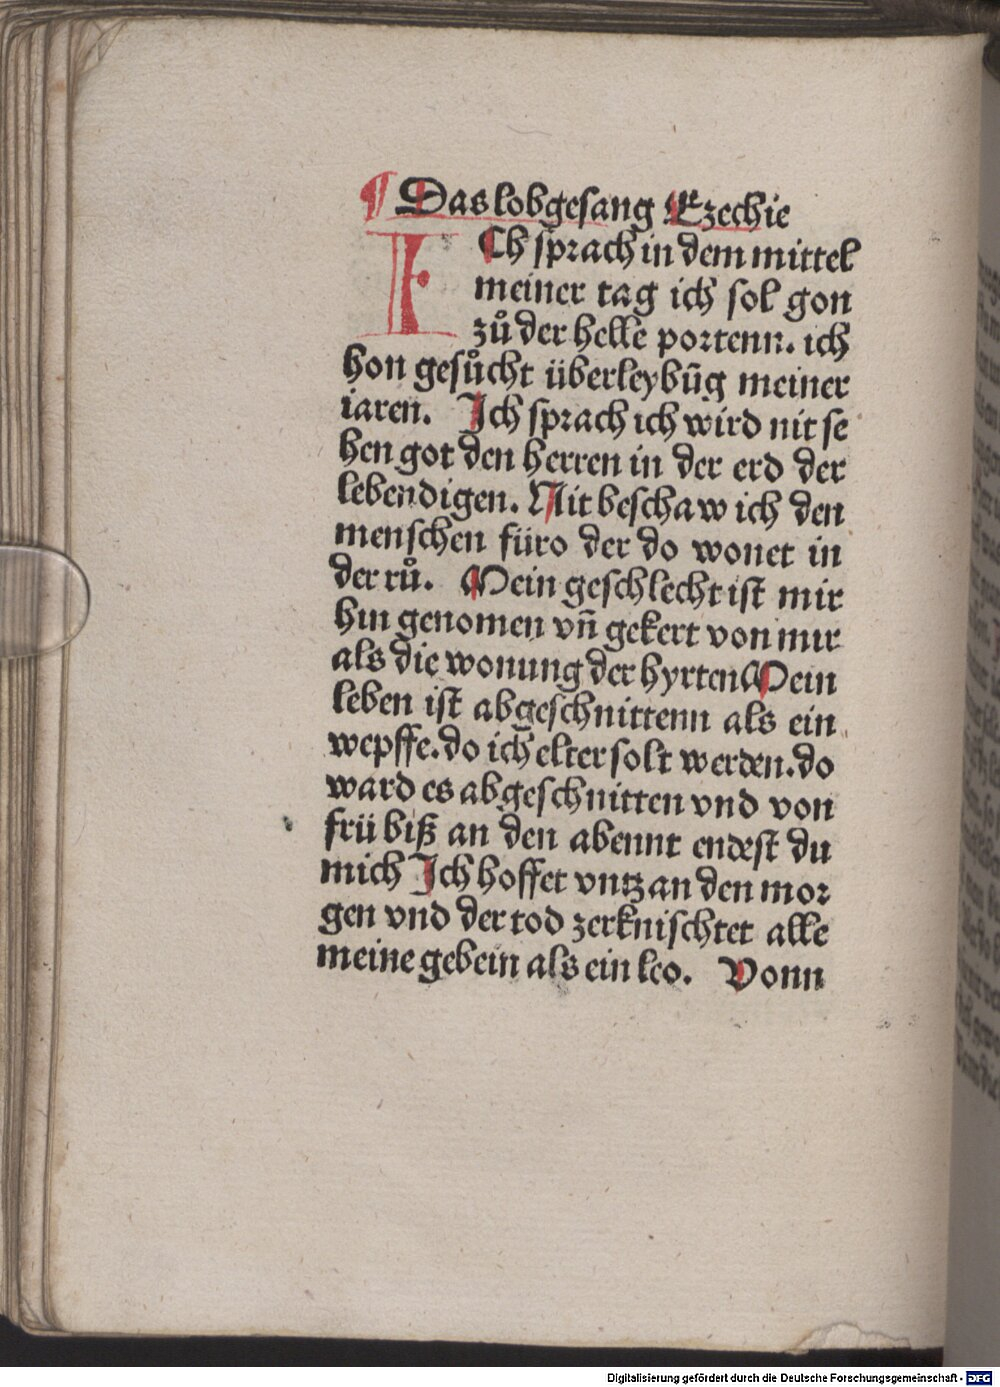 ¶ Das lobgesang Ezechie
ICh sprach in dem mittel
meiner tag ich sol gon
zů der helle portenn. ich
hon gesůcht überleybūg meiner
iaren. Ich sprach ich wird nit se
hen got den herren in der erd der
lebendigen. Nit beschaw ich den
menschen füro der do wonet in
der rů. Mein geschlecht ist mir
hin genomen vn̄ gekert von mir
als die wonung der hyrten Mein
leben ist abgeschnittenn als ein
wepffe. do ich elter solt werden. do
ward es abgeschnitten vnd von
frü biß an den abennt endest du
mich Ich hoffet vntz an den mor
gen vnd der tod zerknischtet alle
meine gebein als ein leo. Vonn
Digitalisierung gefördert durch die Deutsche Forschungsgemeinschaft - DFG